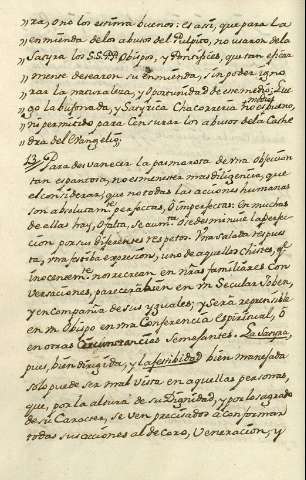 „ra, ò no los estima buenos: es asi, que para la
„enmienda de los abusos del Pulpito, no usaron de la
„Satyra los S.S. PP. Obispos, y Pontifices, que tan eficaz
„mente desearon su enmienda, sin poder igno
„rar la naturaleza, y oportunidad de ese medio; Lue
„go la bufonada, y Satyrica Chacorreria no es bueno,
„ni permitido medio para Censurar los abusos de la Cathe
„dra del Evangelio.
13. Para desvanecer la pasmarota de una objecion
tan espantosa, no es menester mas diligencia, que
el considerar, que no todas las acciones humanas
son absolutamte. perfectas, ò imperfectas: en muchas
de ellas hay, ò falta, se aumta. ò se desminuie la perfec
cion por sus diferentes respetos. Una salada respues
ta, una festiba expresion, uno de aquellos chistes, qe.
inocentemte. nos recrean en nras familiares Con
versaciones, parecerà bien en un Secular Joben,
y en compañia de sus yguales; y serà reprensible
en un Obispo en una Conferencia espiritual, ò
en otras Circunstancias Semejantes. La Satyra,
pues, bien dirigida, y la festibidad bien manejada
solo puede ser mal vista en aquellas personas,
que, por la altura de su Dignidad, y por lo sagrado
de su Caracter, se ven precisados à conformar
todas sus acciones al decoro, Veneracion, y